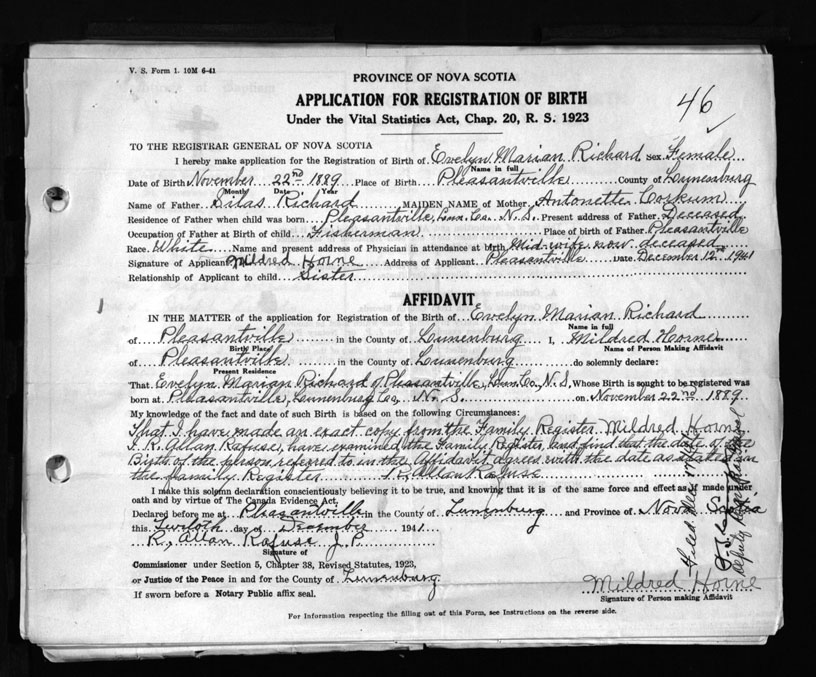 V. S. Form 1. 10M 6-41
PROVINCE OF NOVA SCOTIA
APPLICATION FOR REGISTRATION OF BIRTH
46
Under the Vital Statistics Act, Chap. 20, R. S. 1923
TO THE REGISTRAR GENERAL OF NOVA SCOTIA
I hereby make application for the Registration of Birth of Evelyn Marian Richard Sex Female
Name in full
Date of Birth November 22nd 1889 Place of Birth Pleasantville County of Lunenburg
Month Date Year
Name of Father Silas Richard MAIDEN NAME of Mother Antonette Corkum
Residence of Father when child was born Pleasantville, Lun. Co. N. S. Present address of Father Deceased
Occupation of Father at Birth of child Fisherman Place of birth of Father Pleasantville
Race White Name and present address of Physician in attendance at birth Mid wife now deceased
Signature of Applicant Mildred Horne Address of Applicant Pleasantville Date December 12, 1941
Relationship of Applicant to child Sister
AFFIDAVIT
IN THE MATTER of the application for Registration of the Birth of Evelyn Marian Richard
Name in full
of Pleasantville in the County of Lunenburg I, Mildred Horne
Birth Place Name of Person Making Affidavit
of Pleasantville in the County of Lunenburg do solemnly declare:
Present Residence
That Evelyn Marian Richard of Pleasantville, Lun. Co., N. S. Whose Birth is sought to be registered was
born at Pleasantville, Lunenburg Co., N. S. on November 22nd 1889
My knowledge of the fact and date of such Birth is based on the following Circumstances:
That I have made an exact copy from the Family Register Mildred Horne
I, R. Allan Rafuse, have examined the Family Register, and find that the date of the
Birth of the person referred to in the Affidavit agrees with the date as stated in
the family Register R. Allan Rafuse
I make this solemn declaration conscientiously believing it to be true, and knowing that it is of the same force and effect as made under
oath and by virtue of The Canada Evidence Act.
Declared before me at Pleasantville in the County of Lunenburg and Province of Nova Scotia
this Twelfth day of December 1941
R. Allan Rafuse J. P.
Signature of
Commissioner under Section 5, Chapter 38, Revised Statutes, 1923,
or Justice of the Peace in and for the County of Lunenburg
If sworn before a Notary Public affix seal.
Mildred Horne
Signature of Person making Affidavit
For Information respecting the filling out of this Form, see Instructions on the reverse side.
Filed
Deputy Registrar General